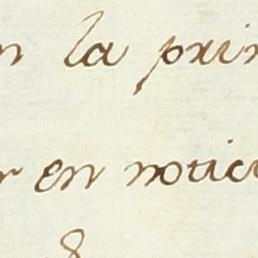 n la prin
r en notici